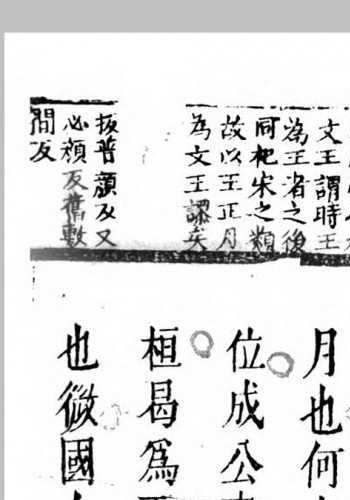 文王謂時王
為王者之後
同杞宋之類
故以王正月
為文王謬矣
扳普顏反又
必顏反舊敷
間反
月也何
位成公
桓曷為
也微國